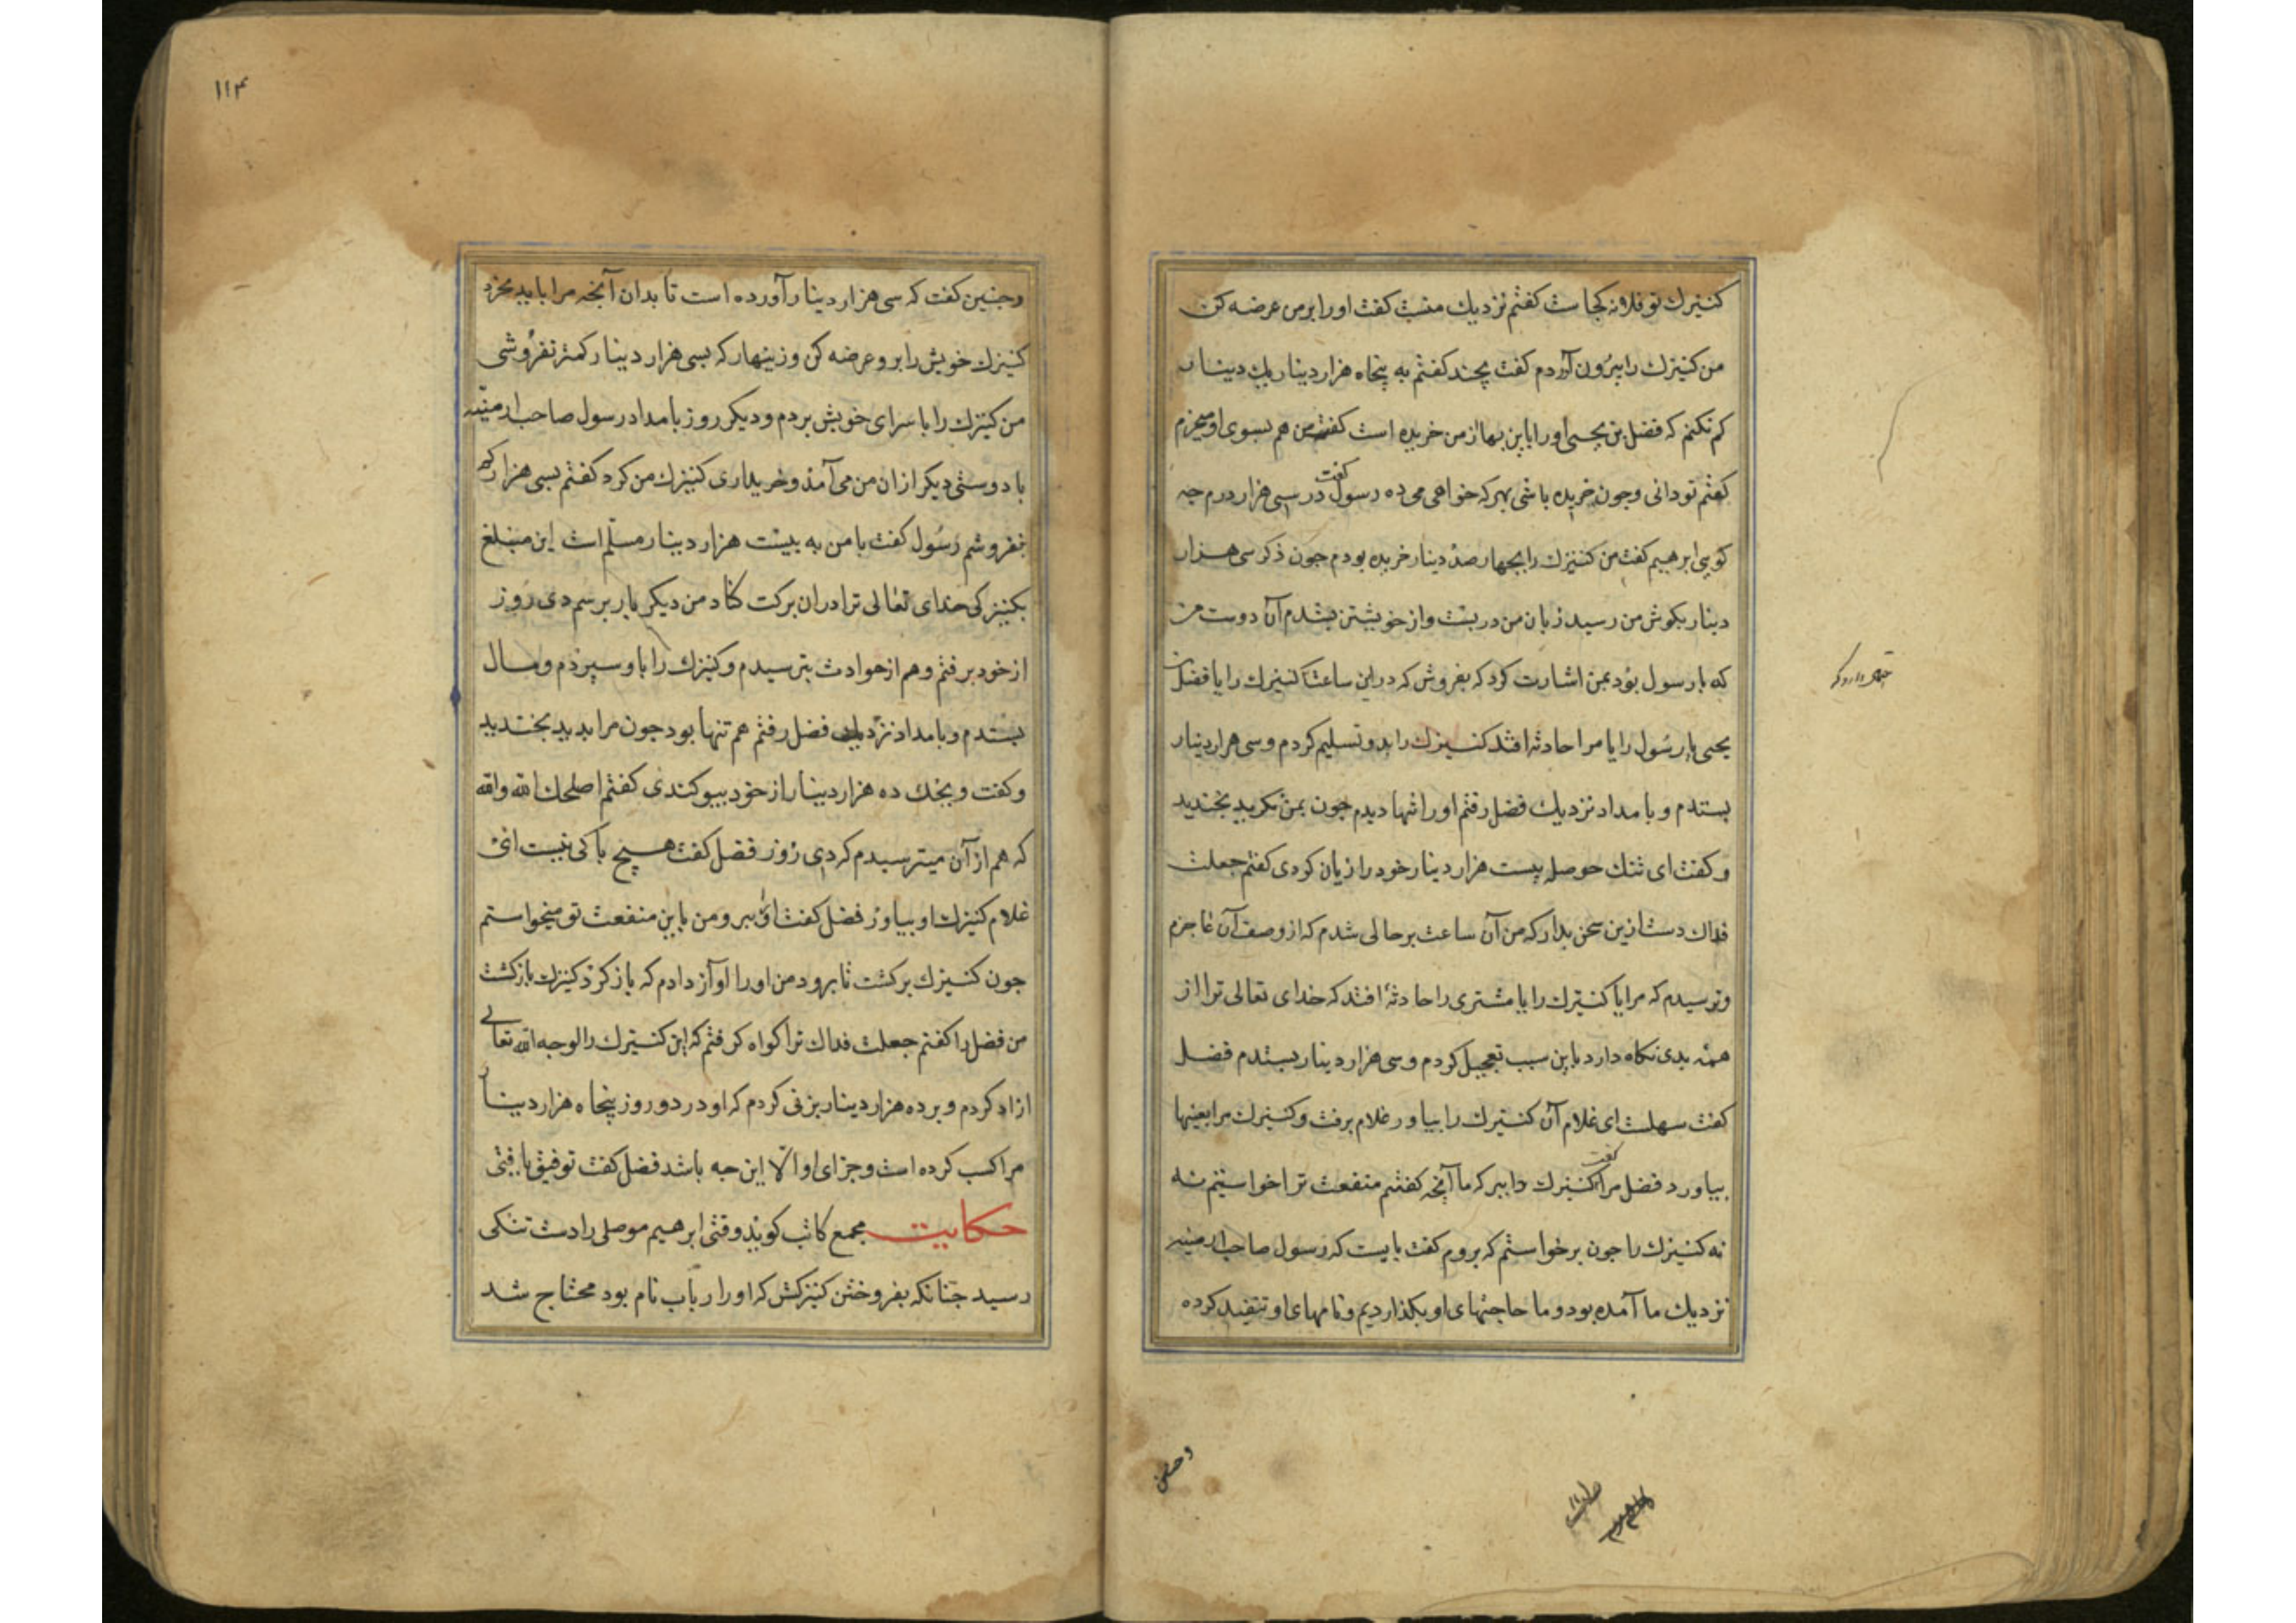 کنیزك تو فلانه کجاست گفتم نزدیك منست گفت او را بر من عرضه کن
من کنیزك را بیرون آوردم گفت بچند گفتم به پنجاه هزار دینار یك دینار
کم نکنم که فضل بن یحیی او را باین بها از من خریده است گفت من هم بسوی او میخرم
گفتم تو دانی و چون خریده باشی بهر که خواهی می ده رسول گفت در سی هزار درم چه
کویی ابرهیم گفت من کنیزك را بچهار صد دینار خریده بودم جون ذکر سی هزار
دینار بکوش من رسید زبان من در بست و از خویشتن بشدم آن دوست من
که با رسول بود بمن اشارت کرد که بفروش که در این ساعت کنیزك را یا فضل بن
یحیی یا رسول را یا مرا حادثه افتد کنیزك را بدو تسلیم کردم و سی هزار دینار
بستدم و بامداد نزدیك فضل رفتم او را تنها دیدم جون بمن نکرید بخندید
و کفت ای تنك حوصله بیست هزار دینار خود را زیان کردی کفتم جعلت
فداك دست ازین سخن بدار که من آن ساعت بر حالی شدم که از وصف آن عاجزم
و ترسیدم که مرا یا کنیزك را یا مشتری را حادثهٔ افتد که خدای تعالی ترا از
همه بدی نکاه دارد باین سبب تعجیل کردم و سی هزار دینار بستدم فضل
کفت سهلست ای غلام آن کنیزك را بیاور غلام برفت و کنیزك مرا بعینها
بیاورد فضل مرا کفت کنیزك را ببر که ما آنچه کفتیم منفعت ترا خواستیم نه
نه کنیزك را جون برخواستم که بروم کفت بایست که رسول صاحب ارمنیه
نزدیك ما آمده بود و ما حاجتهای او بکذاردیم و نامهای او تنفیذ کرده
۱۱۴
و جنین کفت که سی هزار دینار آورده است تا بدان آنجه مرا باید بخرد
کنیزك خویش را برو عرضه کن و زینهار که بسی هزار دینار کمتر نفروشی
من کنیزك را با سرای خویش بردم و دیکر روز بامداد رسول صاحب ارمنیه
با دوستی دیکر از ان من می آمد و خریداری کنیزك من کرد کفتم بسی هزار کم
نفروشم رسول کفت با من به بیست هزار دینار مسلم است این مبلغ
بکیر کی خدای تعالی ترا دران برکت کناد من دیکر بار برسم دی روز
از خود برفتم و هم از حوادث بترسیدم و کنیزك را باو سپردم و مال
بستدم و بامداد نزدیك فضل رفتم هم تنها بود جون مرا بدید بخندید
و کفت ویحك ده هزار دینار از خود بیوکندی کفتم اصلحك الله والله
که هم از آن میترسیدم که دی روز فضل کفت هیچ باکی نیست ای
غلام کنیزك او بیاور فضل کفت او را ببر و من باین منفعت تو میخواستم
جون کنیزك برکشت تا برود من او را آواز دادم که باز کرد کنیزك بازکشت
من فضل را کفتم جعلت فداك ترا کواه کرفتم که این کنیزك را لوجه الله تعالی
ازاد کردم و بر ده هزار دینار بزنی کردم که او در دو روز پنجاه هزار دینار
مرا کسب کرده است و جزای او الّا این جه باشد فضل کفت توفیق یافتی
حکایت مجمع کاتب کوید وقتی ابرهیم موصلی را دست تنکی
رسید جنانکه بفروختن کنیزکش که او را رباب نام بود محتاج شد
و جنین